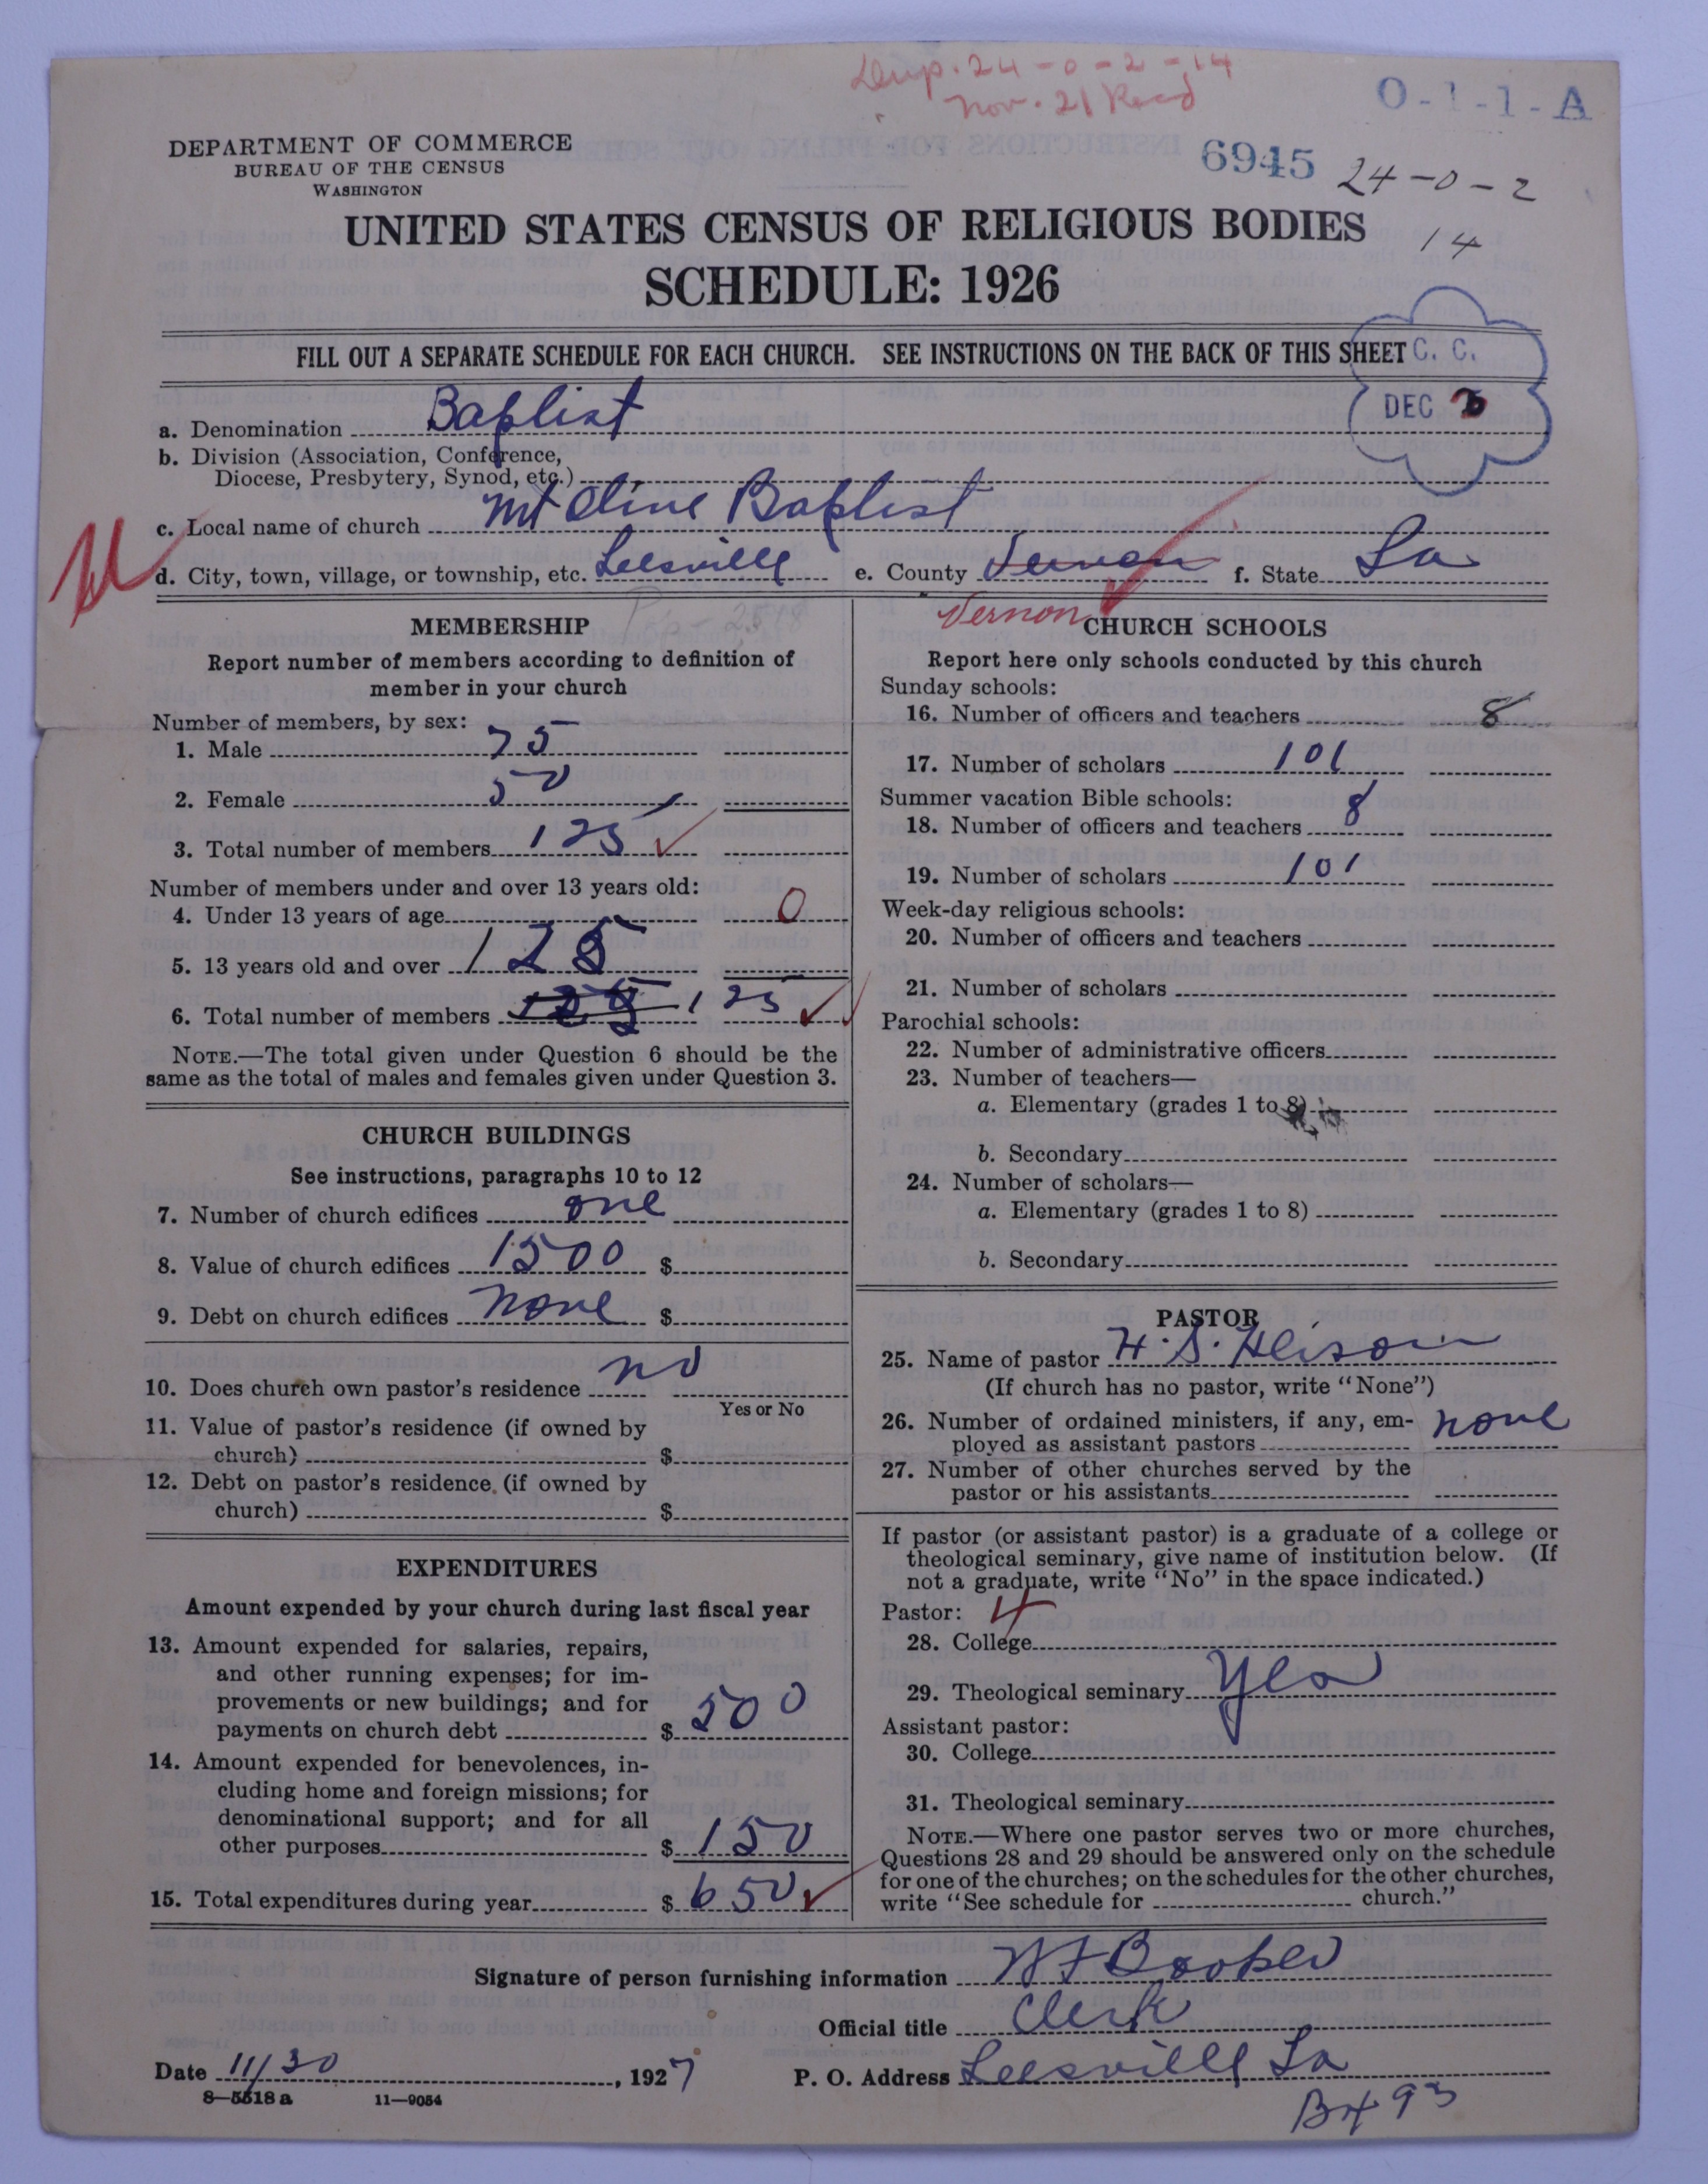 Dup. 24-0-2-14
Nov. 21 Recd
O-1-1-A
DEPARTMENT OF COMMERCE
BUREAU OF THE CENSUS
WASHINGTON
6945
24-0-2
14
UNITED STATES CENSUS OF RELIGIOUS BODIES
SCHEDULE: 1926
FILL OUT A SEPARATE SCHEDULE FOR EACH CHURCH. SEE INSTRUCTIONS ON THE BACK OF THIS SHEET
C. C.
DEC
a. Denomination Baptist
b. Division (Association, Conference,
Diocese, Presbytery, Synod, etc.)
c. Local name of church Mt Olive Baptist
d. City, town, village, or township, etc. Leesville e. County Vernon f. State La
Vernon
MEMBERSHIP
Report number of members according to definition of
member in your church
Number of members, by sex:
1. Male 75
2. Female 50
3. Total number of members 125
Number of members under and over 13 years old:
4. Under 13 years of age 0
5. 13 years old and over 125
6. Total number of members 125
NOTE.—The total given under Question 6 should be the
same as the total of males and females given under Question 3.
CHURCH BUILDINGS
See instructions, paragraphs 10 to 12
7. Number of church edifices one
8. Value of church edifices 1500 $
9. Debt on church edifices none $
10. Does church own pastor's residence no
Yes or No
11. Value of pastor's residence (if owned by
church) $
12. Debt on pastor's residence (if owned by
church) $
EXPENDITURES
Amount expended by your church during last fiscal year
13. Amount expended for salaries, repairs,
and other running expenses; for im-
provements or new buildings; and for
payments on church debt $ 500
14. Amount expended for benevolences, in-
cluding home and foreign missions; for
denominational support; and for all
other purposes $ 150
15. Total expenditures during year $ 650
CHURCH SCHOOLS
Report here only schools conducted by this church
Sunday schools:
16. Number of officers and teachers 8
17. Number of scholars 101
Summer vacation Bible schools:
18. Number of officers and teachers 8
19. Number of scholars 101
Week-day religious schools:
20. Number of officers and teachers
21. Number of scholars
Parochial schools:
22. Number of administrative officers
23. Number of teachers—
a. Elementary (grades 1 to 8)
b. Secondary
24. Number of scholars—
a. Elementary (grades 1 to 8)
b. Secondary
PASTOR
25. Name of pastor H. S.
(If church has no pastor, write "None")
26. Number of ordained ministers, if any, em-
ployed as assistant pastors none
27. Number of other churches served by the
pastor or his assistants
If pastor (or assistant pastor) is a graduate of a college or
theological seminary, give name of institution below. (If
not a graduate, write "No" in the space indicated.)
Pastor: 4
28. College
29. Theological seminary Yes
Assistant pastor:
30. College
31. Theological seminary
NOTE.—Where one pastor serves two or more churches,
Questions 28 and 29 should be answered only on the schedule
for one of the churches; on the schedules for the other churches,
write "See schedule for church."
Signature of person furnishing information W F Booker
Official title Clerk
Date 11/30, 1927 P. O. Address Leesville La
Bx 93
8—5518 a 11—9054